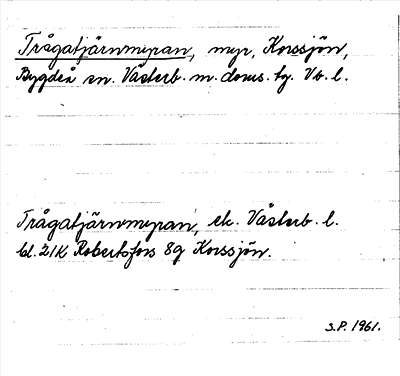 Trågatjärnmyran, myr, Korssjön,
Bygdeå sn. Västerb. m. doms. tg. Vb. l.
Trågatjärnmyran, ek. Västerb. l.
bl. 21K Robertsfors 8g Korssjön.
S.P. 1961.